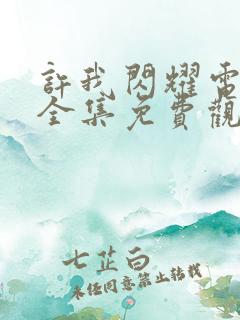 許我閃耀電
全集免費觀
七芷白
未經同意禁止轉載